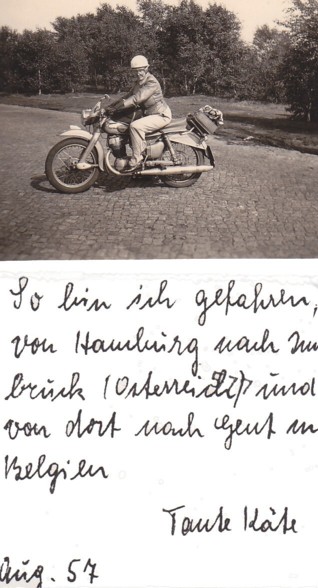 So bin ich gefahren,
von Hamburg nach Inn
bruck (Österreich) und
von dort nach Gent in
Belgien
Tante Käte
Aug. 57